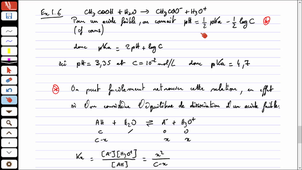 Ex 1.6 CH3COOH + H2O → CH3COO⁻ + H3O⁺
Pour un acide faible, on connait pH = 1/2 pKa - 1/2 log C
(cf cours)
donc pKa = 2pH + log C
ici pH = 3,35 et C = 10⁻² mol/L donc pKa = 4,7
On peut facilement retrouver cette relation, en effet
si on considère l'équilibre de dissociation d'un acide faible:
AH + H2O ⇌ A⁻ + H3O⁺
C / 0 0
C-x / x x
Ka = [A⁻][H3O⁺] / [AH] = x² / C-x